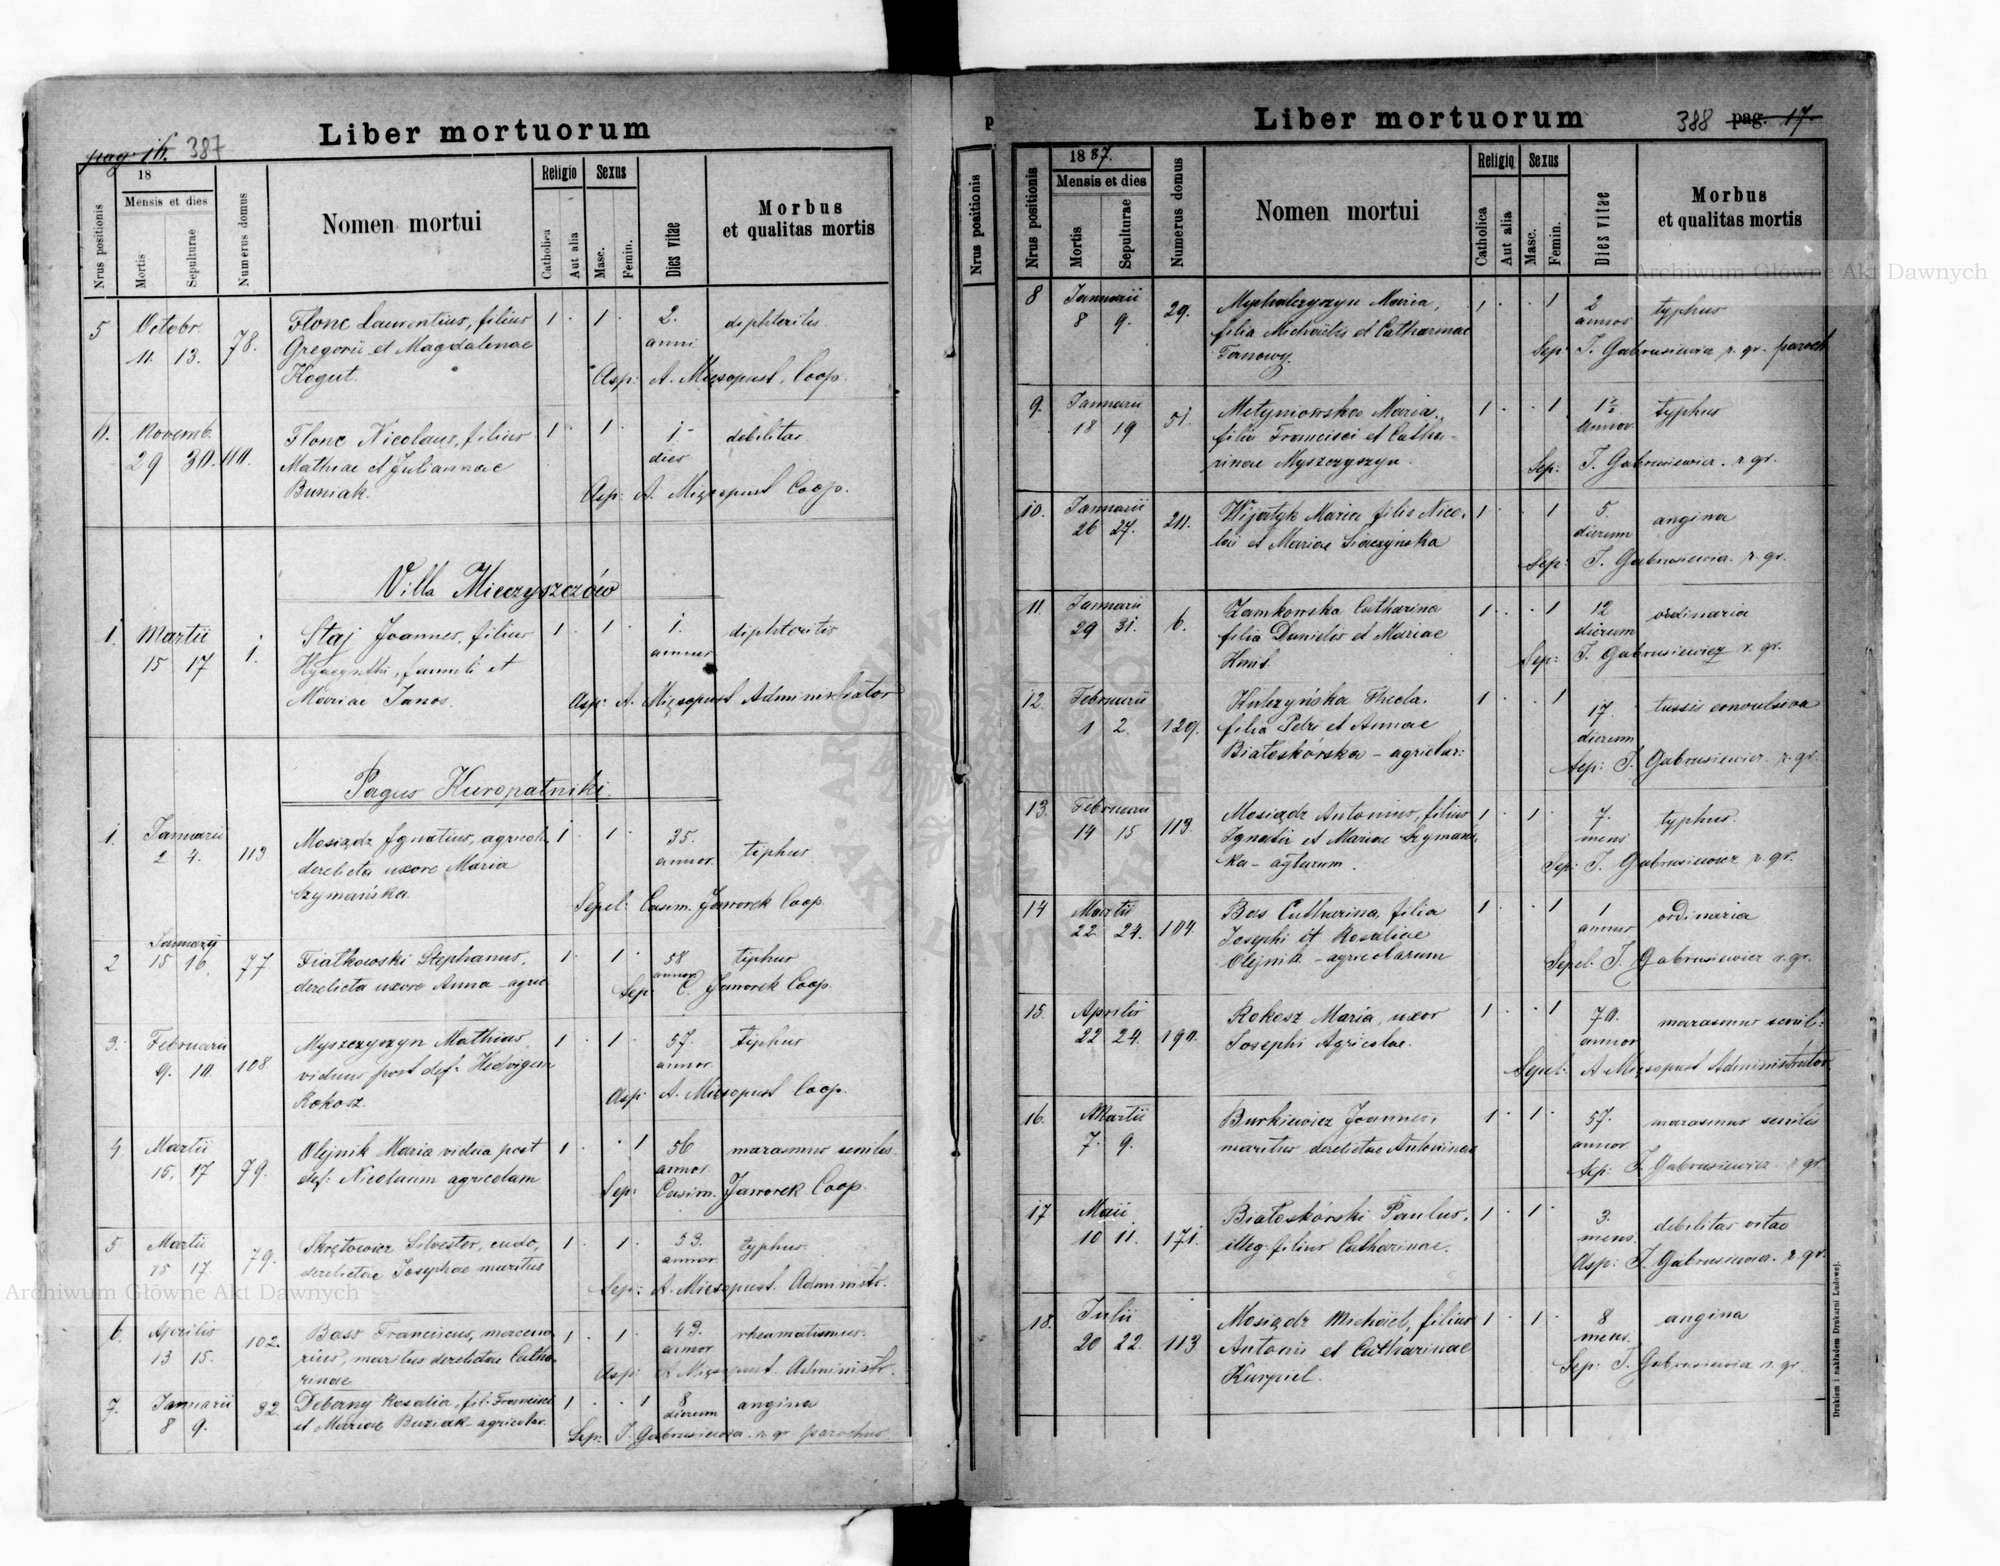 Liber mortuorum
pag. 16. 387
Nrus positionis
18
Mensis et dies
Mortis
Sepulturae
Numerus domus
Nomen mortui
Religio
Catholica
Aut alia
Sexus
Masc.
Femin.
Dies vitae
Morbus
et qualitas mortis
5 Octobr. 11. 13. 78. Flonc Laurentius, filius 1 · 1 · 2. anni diphteritis
Gregorii et Magdalenae
Kogut. Asp: A. Mięsopust, Coop.
6. Novemb. 29 30. 110. Flonc Nicolaus, filius 1 · 1 · 1 dies debilitas
Mathiae et Juliannae
Buniak. Asp: A. Mięsopust Coop.
Villa Mieczyszczów
1. Martii 15 17 1. Staj Joannes, filius 1 · 1 · 1. annus diphteritis
Hyacynthi, famuli et
Mariae Janos. Asp: A. Mięsopust Administrator
Pagus Kuropatniki.
1. Januarii 2 4. 113 Mosiądz Ignatius, agricola, 1 · 1 · 35. annor. tiphus
derelicta uxore Maria
Szymańska. Sepel: Casim. Jaworek Coop.
2 Januarij 15 16. 77 Fiałkowski Stephanus, 1 · 1 · 58 annor. tiphus
derelicta uxore Anna - agric Sep: C. Jaworek Coop.
3. Februarii 9. 10. 108 Myszczyszyn Mathias, 1 · 1 · 57. annor. tiphus
viduus post def: Hedvigem
Rokosz. Asp: A. Mięsopust Coop.
4 Martii 15. 17 79. Olejnik Maria vidua post 1 · · 1 56 annor. marasmus senilis.
def: Nicolaum agricolam Sep: Casim. Jaworek Coop.
5 Martii 15 17 79. Skrętowicz Silvester, cudo, 1 · 1 · 53. annor. typhus.
derelictae Josephae maritus Sep: A. Mięsopust. Administr.
6. Aprilis 13 15. 102. Bass Franciscus, mercena 1 · 1 · 43. annor rheumatismus.
rius, maritus derelictae Catha-
rinae Asp: A. Mięsopust. Administr.
7. Januarii 8 9. 32. Deberny Rosalia, fil: Francisci 1 · · 1 8 dierum angina
et Mariae Buniak - agricolar. Sep: J. Gabrusiewicz r. gr. parochus
p
Nrus positionis
Liber mortuorum
388 pag. 17.
Nrus positionis
1887.
Mensis et dies
Mortis
Sepulturae
Numerus domus
Nomen mortui
Religio
Catholica
Aut alia
Sexus
Masc.
Femin.
Dies vitae
Morbus
et qualitas mortis
8 Januarii 8 9. 29. Maria, 1 · · 1 2 annos typhus
filia Michaëlis et Catharinae
Sep: J. Gabrusiewicz r. gr. paroch
9. Januarii 18 19 51. Metyniowska Maria, 1 · · 1 1½ annor. typhus
filia Francisci et Catha-
rinae Myszczyszyn. Sep: J. Gabrusiewicz. r. gr.
10. Januarii 26 27. 211. Wijatyk Maria filia Nico- 1 · · 1 5. dierum angina
lai et Mariae Sep: J. Gabrusiewicz. r. gr.
11. Januarii 29 31. 6. Zamkowska Catharina 1 · · 1 12 dierum ordinaria
filia Danielis et Mariae
Sep: J. Gabrusiewicz r. gr.
12. Februarii 1 2. 129. Kulczyńska Thecla. 1 · · 1 17. dierum tussis convulsiva
filia Petri et Annae
Białoskórska - agricolar: Sep: J. Gabrusiewicz. r. gr.
13. Februarii 14 15 113. Mosiądz Antonius, filius 1 · 1 · 7. mens typhus.
Ignatii et Mariae Szymańs-
ka - agtarum. Sep: J. Gabrusiewicz r. gr.
14 Martii 22 24. 104. Bas Catharina, filia 1 · · 1 1 annus ordinaria
Josephi et Rosaliae
Olejnik - agricolarum Sepel: J. Gabrusiewicz r. gr.
15. Aprilis 22 24. 190. Rokosz Maria, uxor 1 · · 1 70. annor marasmus senil:
Josephi Agricolae. Sepel: A Mięsopust Administrator
16. Martii 7. 9. Burkiewicz Joannes, 1 · 1 · 57. annor. marasmus senilis
maritus derelictae Antoninae Sep: J. Gabrusiewicz. r. gr.
17 Maii 10 11. 171. Białoskórski Paulus, 1 · 1 · 3. mens. debilitas vitae
illeg. filius Catharinae. Asp: J. Gabrusiewicz. r. gr.
18. Julii 20 22. 113 Mosiądz Michaël, filius 1 · 1 · 8 mens. angina
Antonii et Catharinae
Kurpiel. Sep: J. Gabrusiewicz r. gr.
Drukiem i nakładem Drukarni Ludowej.
Archiwum Główne Akt Dawnych
Archiwum Główne Akt Dawnych